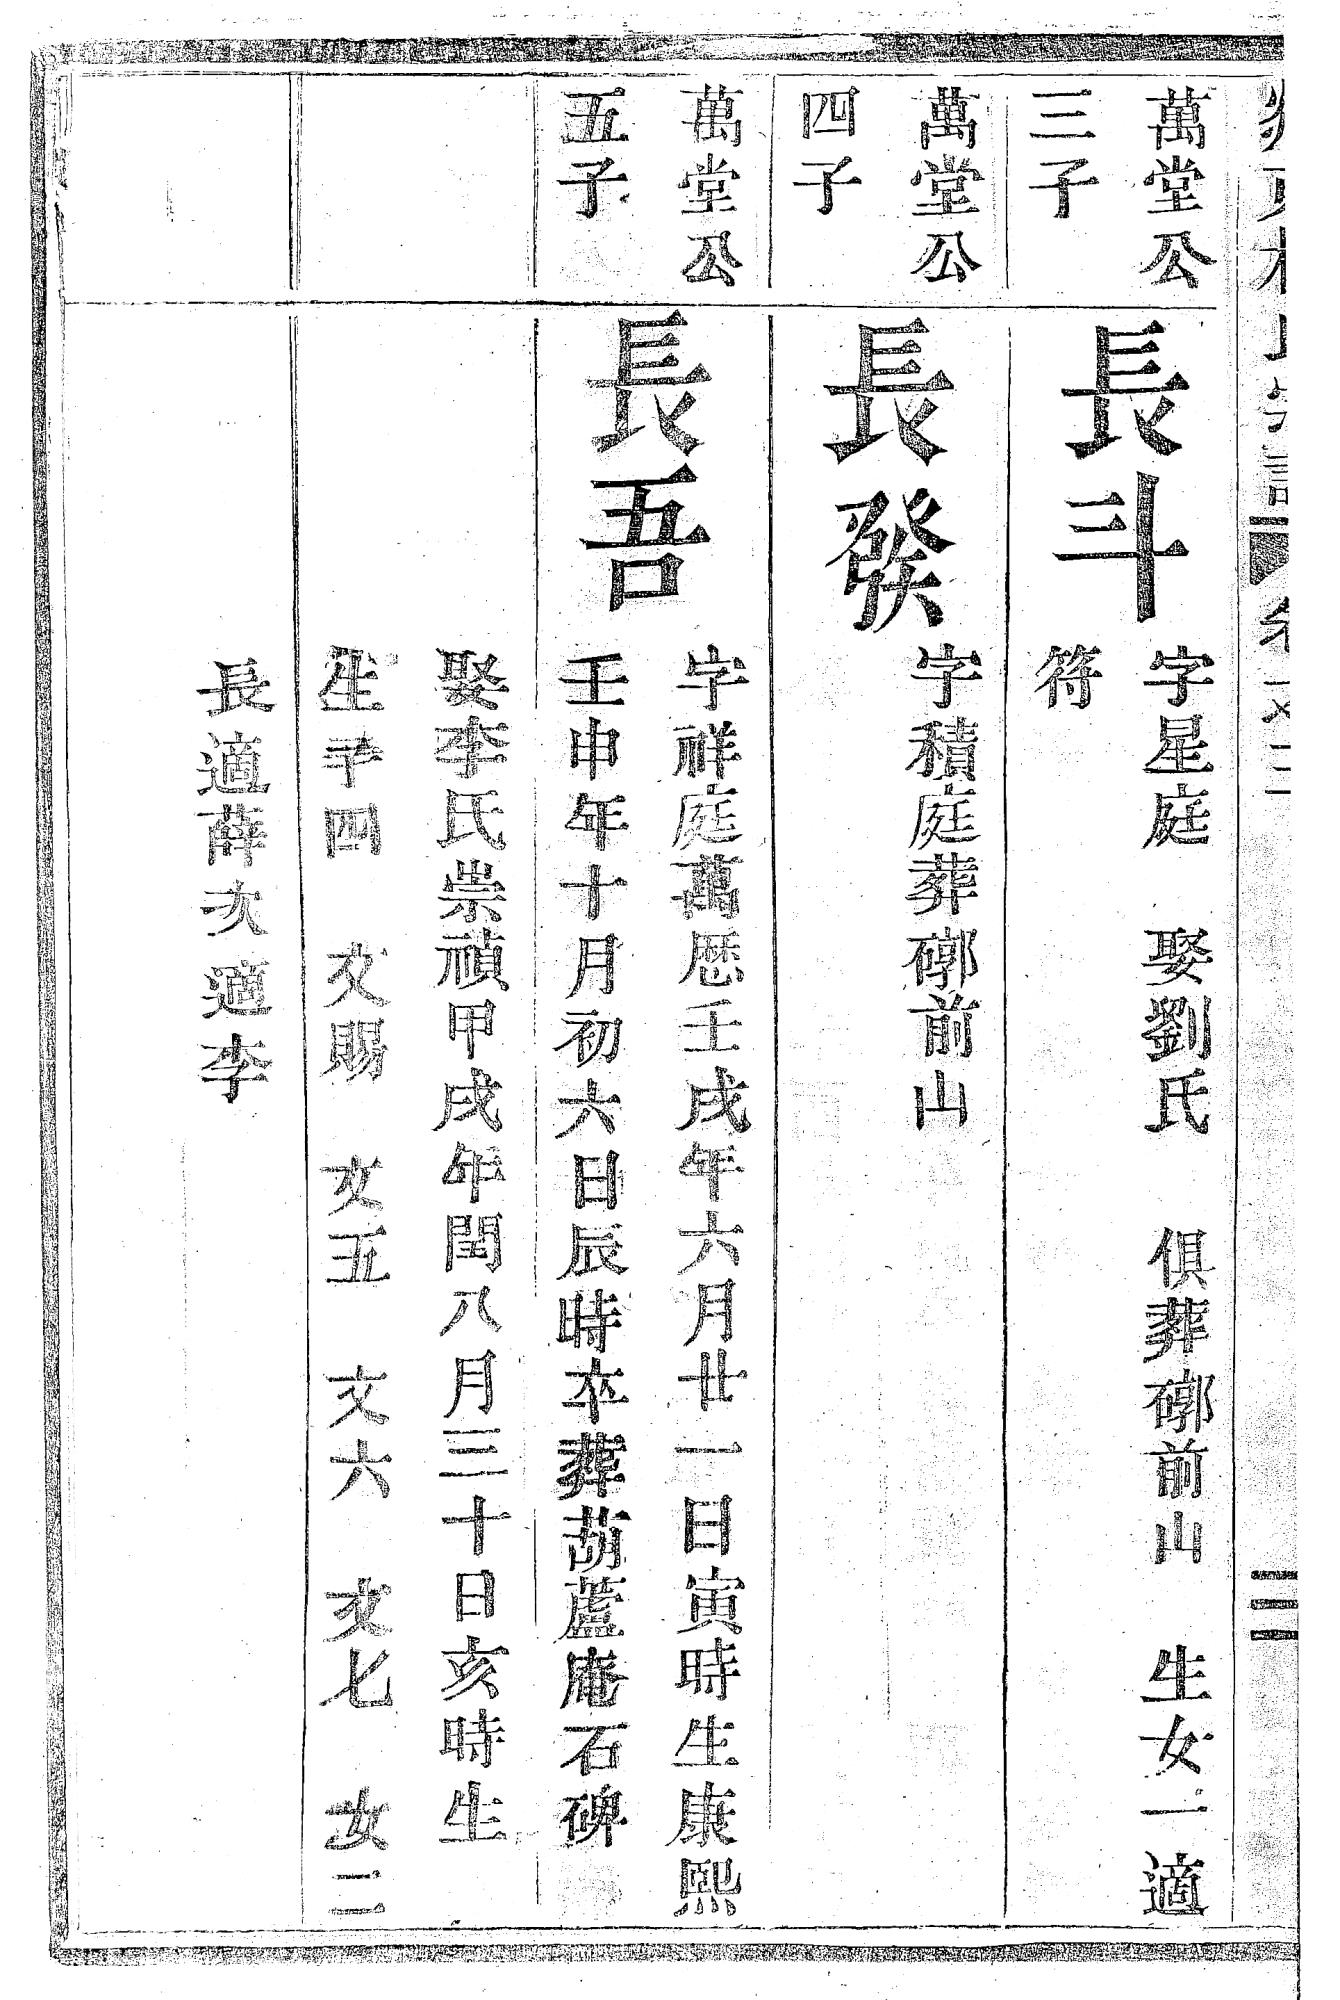 萬堂公
三子
長斗
字星庭 娶劉氏 俱葬𥕖前山 生女一適
符
萬堂公
四子
長發
字積庭葬𥕖前山
萬堂公
五子
長吾
字祥庭萬厯壬戌年六月廿一日寅時生康熙
壬申年十月初六日辰時卒葬葫蘆庵石碑
娶李氏崇禎甲戌年閏八月三十日亥時生
生子四 文賜 文五 文六 文七 女二
長適薛次適李
三